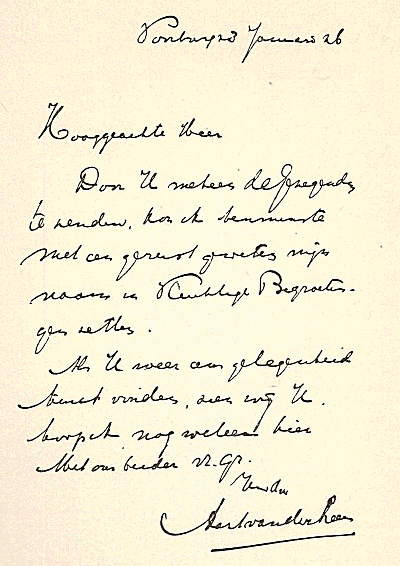 Voorburg 23 Januari 26
Hooggeachte Heer
Door U meteen de
te zenden, kon ik tenminste
met een gerust geweten mijn
naam in Begroetin-
gen zetten.
Als U weer een gelegenheid
kunt vinden, zien wij U
hoop ik nog weleens hier
Met ons beider vr. gr.
Aart van der Leeuw